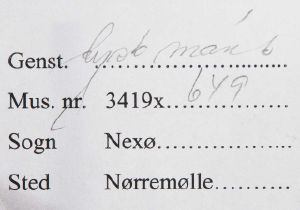 Genst.
Mus. nr. 3419x 649
Sogn Nexø
Sted Nørremølle